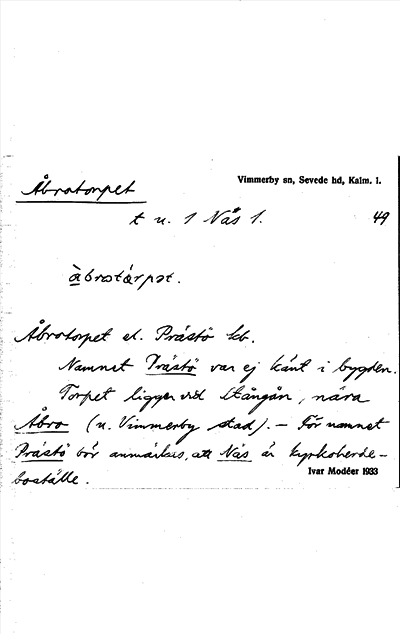 Åbrotorpet
Vimmerby sn, Sevede hd, Kalm. l.
t u. 1 Näs 1.
49
åbrotårpət.
Åbrotorpet el. Prästö kb.
Namnet Prästö var ej känt i bygden.
Torpet ligger vid Stångån, nära
Åbro (u. Vimmerby stad). – För namnet
Prästö bör anmärkas, att Näs är kyrkoherde-
boställe.
Ivar Modéer 1933